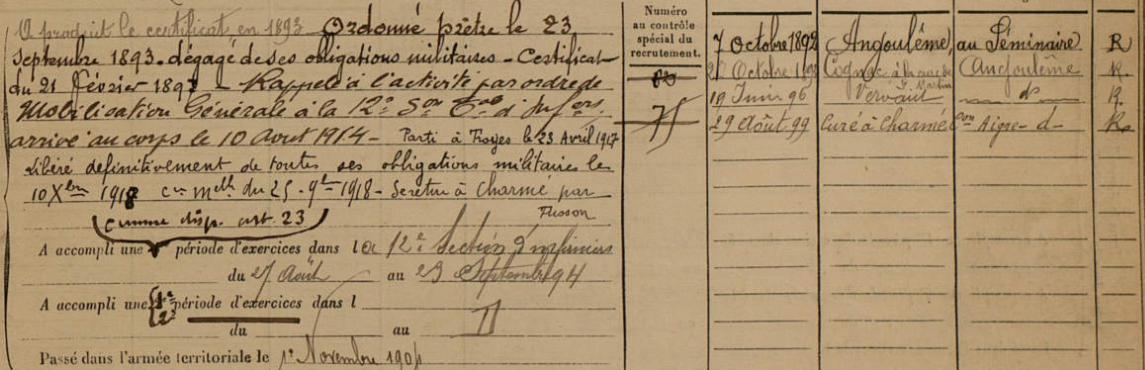 A produit le certificat en 1893 Ordonné prêtre le 23
Septembre 1893 - dégagé de ses obligations militaires - Certificat
du 21 Février 1897 - Rappelé à l'activité par ordre de
Mobilisation Générale à la 12e Son d'Infers
arrivé au corps le 10 Aout 1914 - Parti à Troyes le 23 Avril 1917
Libéré définitivement de toutes ses obligations militaires le
10 Xbre 1918 cre melle du 25 - 9bre 1918 - Se retire à Charmé par
Tusson
(comme disp. art. 23)
A accompli une période d'exercices dans la 12e Section d'infirmiers
du 27 Août au 23 Septembre 94
A accompli une 1e 2e période d'exercices dans l
du au
Passé dans l'armée territoriale le 1er Novembre 1904
Numéro
au contrôle
spécial du
recrutement.
75
7 Octobre 1892 Angoulême, au Séminaire) R
27 Octobre Cognac à la cure de St Martin Angoulême R.
19 Juin 96 Vervant d° R.
29 Août 99 Curé à Charmé Con Aigre - d - R.